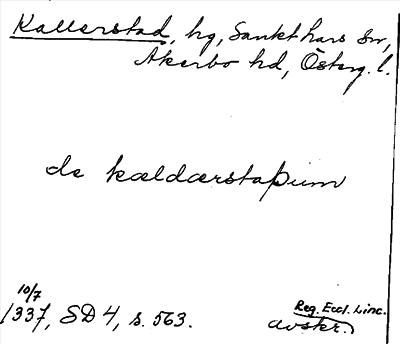 Kallerstad, hg, Sankt Lars sn,
Åkerbo hd, Österg. l.
de kældærstaþum
10/7
1337, SD 4, s. 563.
Reg. Eccl. Linc.
avskr.